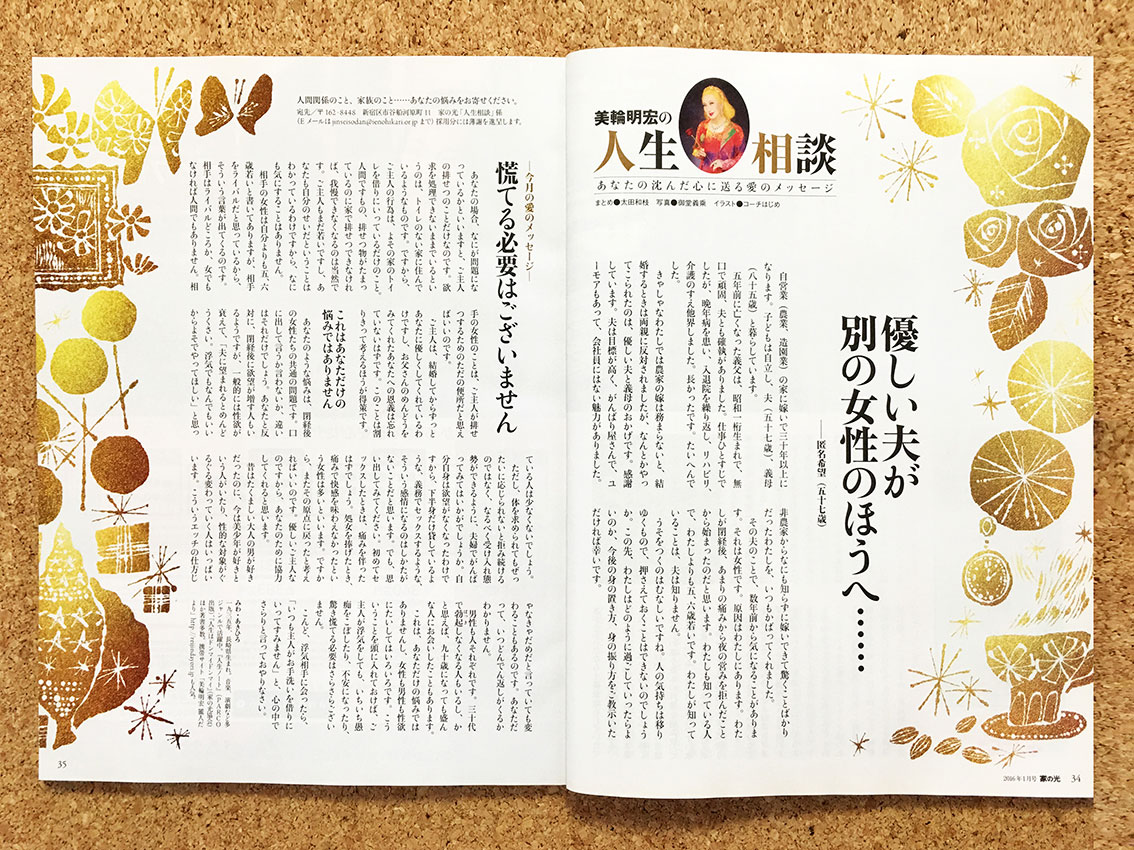 美輪明宏の
人生相談
あなたの沈んだ心に送る愛のメッセージ
まとめ●太田和枝　写真●御堂義乘　イラスト●コーチはじめ
優しい夫が
別の女性のほうへ……
──匿名希望（五十七歳）
自営業（農業、造園業）の家に嫁いで三十年以上に
なります。子どもは自立し、夫（五十七歳）、義母
（八十五歳）と暮らしています。
五年前に亡くなった義父は、昭和一桁生まれで、無
口で頑固、夫とも確執がありました。仕事ひとすじで
したが、晩年病を患い、入退院を繰り返し、リハビリ、
介護のすえ他界しました。長かったです。たいへんで
した。
きゃしゃなわたしでは農家の嫁は務まらないと、結
婚するときは両親に反対されましたが、なんとかやっ
てこられたのは、優しい夫と義母のおかげです。感謝
しています。夫は目標が高く、がんばり屋さんで、ユ
ーモアもあって、会社員にはない魅力がありました。
非農家からなにも知らずに嫁いできて驚くことばかり
だったわたしを、いつもかばってくれました。
その夫のことで、数年前から気になることがありま
す。それは女性です。原因はわたしにあります。わた
しが閉経後、あまりの痛みから夜の営みを拒んだこと
から始まったのだと思います。わたしも知っている人
で、わたしよりも五、六歳若いです。わたしが知って
いることは、夫は知りません。
うそをつくのはむなしいですね。人の気持ちは移り
ゆくもので、押さえておくことはできないのでしょう
か。この先、わたしはどのように過ごしていったらよ
いのか、今後の身の置き方、身の振り方をご教示いた
だければ幸いです。
2016年1月号 家の光 34
人間関係のこと、家族のこと……あなたの悩みをお寄せください。
宛先／〒162-8448　新宿区市谷船河原町11　家の光「人生相談」係
（Eメールは jinseisodan@ienohikari.or.jp まで）採用分には薄謝を進呈します。
──今月の愛のメッセージ──
慌てる必要はございません
あなたの場合、なにが問題にな
っているかといいますと、ご主人
の排せつのことだけなのです。欲
求を処理できないままでいるとい
うのは、トイレのない家に住んで
いるようなものです。ですから、
ご主人の行為は、よその家のトイ
レを借りにいっているだけのこと。
人間ですもの、排せつ物がたまっ
ているのに家で排せつできなけれ
ば、我慢できなくなるのは当然で
す。ご主人もまだ若いですし、あ
なたも自分のせいだということは
わかっているわけですから、なに
も気にすることはありません。
相手の女性は自分よりも五、六
歳若いと書いてありますが、相手
をライバルだと思っているから、
そういう言葉が出てくるのです。
相手はライバルどころか、女でも
なければ人間でもありません。相
手の女性のことは、ご主人が排せ
つするためのただの便所だと思え
ばいいのです。
ご主人は、結婚してからずっと
あなたに優しくしてくれているわ
けですし、お父さんのめんどうを
みてくれたあなたへの恩義は忘れ
ていないはずです。このことは割
りきって考えるほうが得策です。
これはあなただけの
悩みではありません
あなたのような悩みは、閉経後
の女性たちの共通の問題です。口
に出して言うか言わないか、違い
はそれだけでしょう。あなたと反
対に、閉経後に欲望が増す人もい
るようですが、一般的には性欲が
衰えて、「夫に望まれるとめんど
うくさい、浮気でもなんでもいい
からよそでやってほしい」と思っ
ている人は少なくないでしょう。
ただし、体を求められてもぜっ
たいに応じられないと拒み続ける
のではなく、なるべく受け入れ態
勢ができるように、夫婦でがんば
ってみてはいかがでしょうか。自
分自身は欲望がなくなったわけで
すから、下半身だけ貸しているよ
うな、義務でセックスするような、
そういう感情になるのはしかたが
ないことだと思います。でも、思
い出してみてください。初めてセ
ックスしたときは、痛みを伴った
はずでしょう。処女を捧げたとき、
痛みで快感を味わえなかったとい
う女性は多いといいます。ですか
ら、またその原点に戻ったと考え
ればいいのです。優しいご主人な
のですから、あなたのために協力
してくれると思います。
昔はたくましい大人の男が好き
だったのに、今は美少年が好きと
いう人がいたり、性的な対象がぐ
るぐる変わっていく人はいっぱい
います。こういうエッチの仕方じ
ゃなきゃだめだと言っていても変
わることもあるのです。あなただ
って、いつどんでん返しがくるか
わかりません。
男性も人それぞれです。三十代
で勃起しなくなる人もいるし、か
と思えば、九十歳になっても盛ん
な人にお会いしたこともあります。
これは、あなただけの悩みでは
ありませんし、女性も男性も性欲
にたいしてはいろいろです。こう
いうことを頭に入れておけば、ご
主人が浮気をしても、いちいち愚
痴をこぼしたり、不安になったり、
驚き慌てる必要はさらさらござい
ません。
こんど、浮気相手に会ったら、
「いつも主人がお手洗いを借りに
いってすみません」と、心の中で
さらりと言っておやりなさい。
みわ・あきひろ
一九三五年、長崎県生まれ。音楽、演劇など多
35